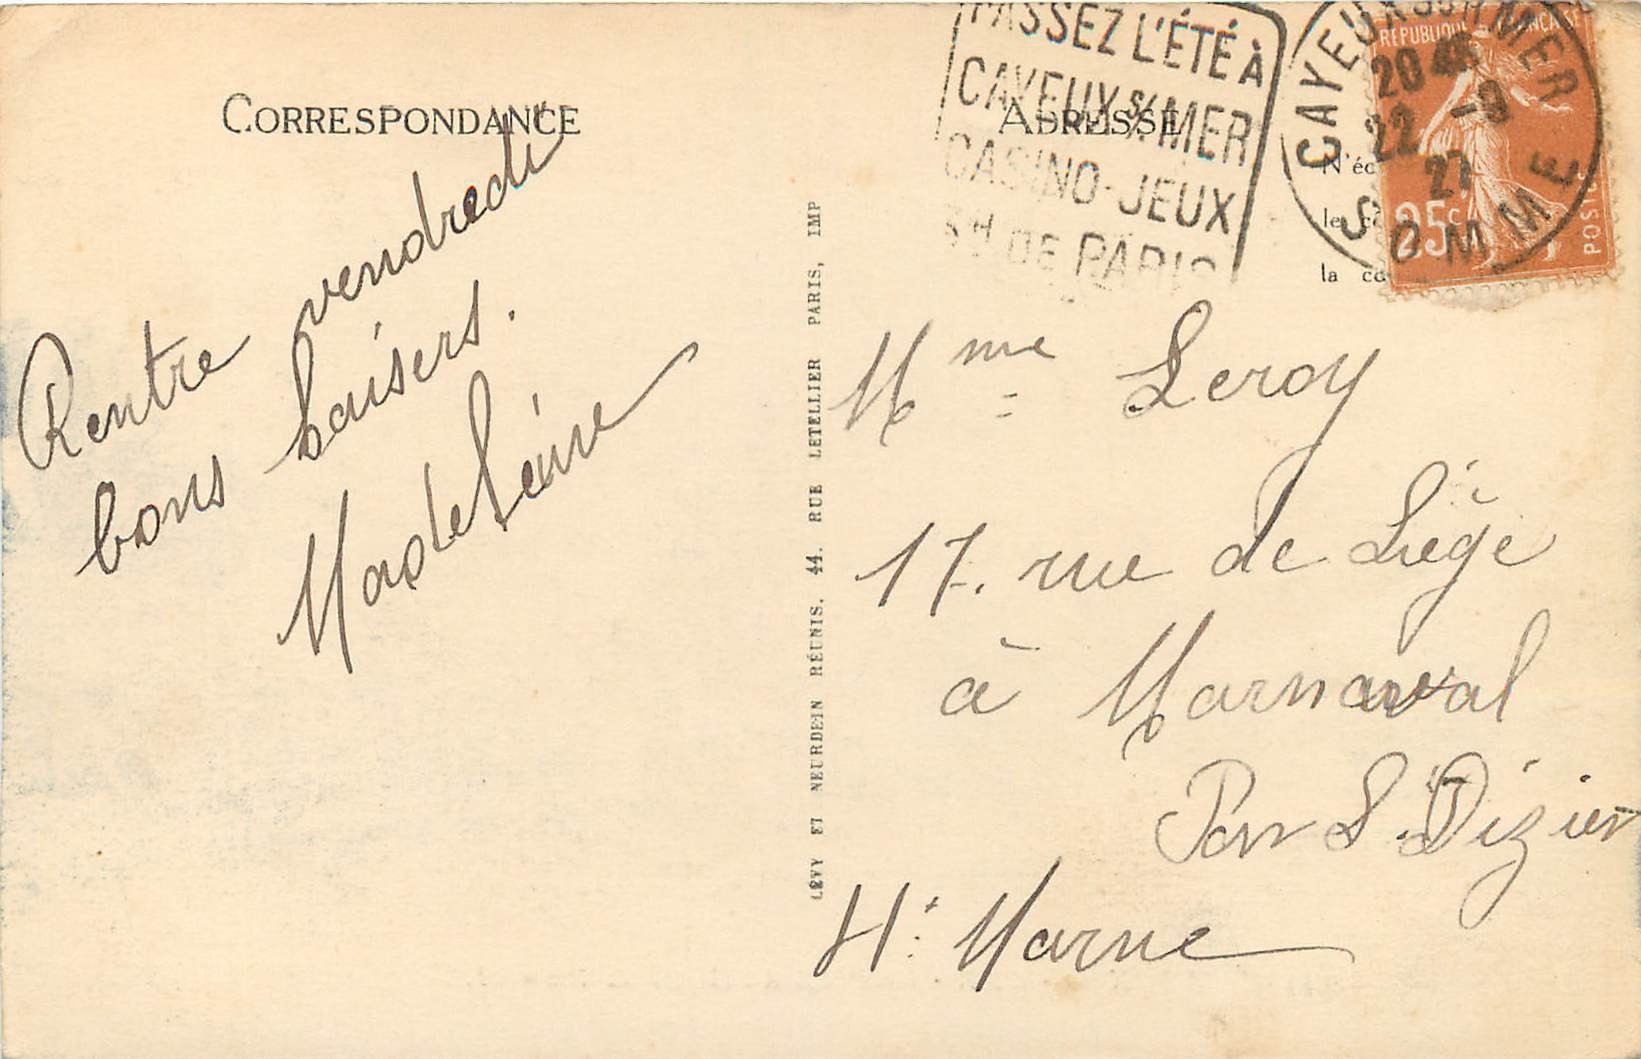 CORRESPONDANCE
Rentre vendredi
bons baisers.
Madeleine
LÉVY ET NEURDEIN RÉUNIS. 44. RUE LETELLIER PARIS, IMP
PASSEZ L'ÉTÉ À
CAYEUX S/MER
CASINO-JEUX
3H DE PARIS
ADRESSE
CAYEUX SUR MER
20 45
22 -9
27
SOMME
RÉPUBLIQUE FRANÇAISE
25c
POSTES
N'éc
le co
la co
Mme Leroy
17. rue de Liège
à Marnaval
Par S. Dizier
Hte Marne